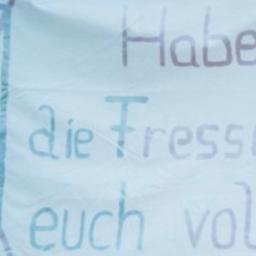 Habe
die Fress
euch vol